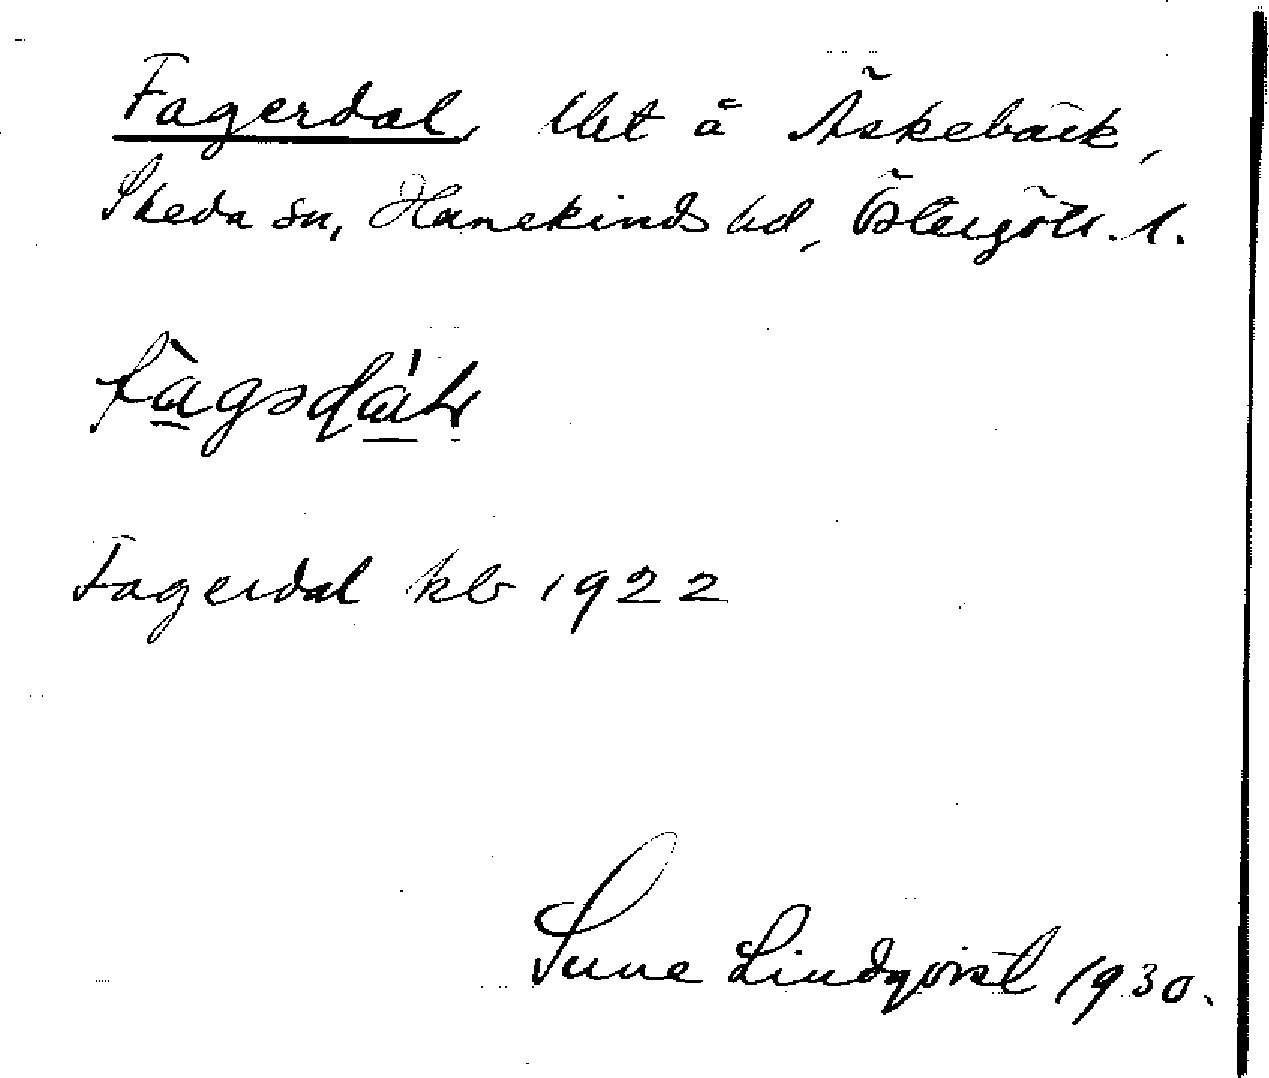 Fagerdal, lht å Äskebäck,
Skeda sn, Hanekinds hd, Östergötl. l.
Fagerdal kb 1922
Sune Lindqvist 1930.